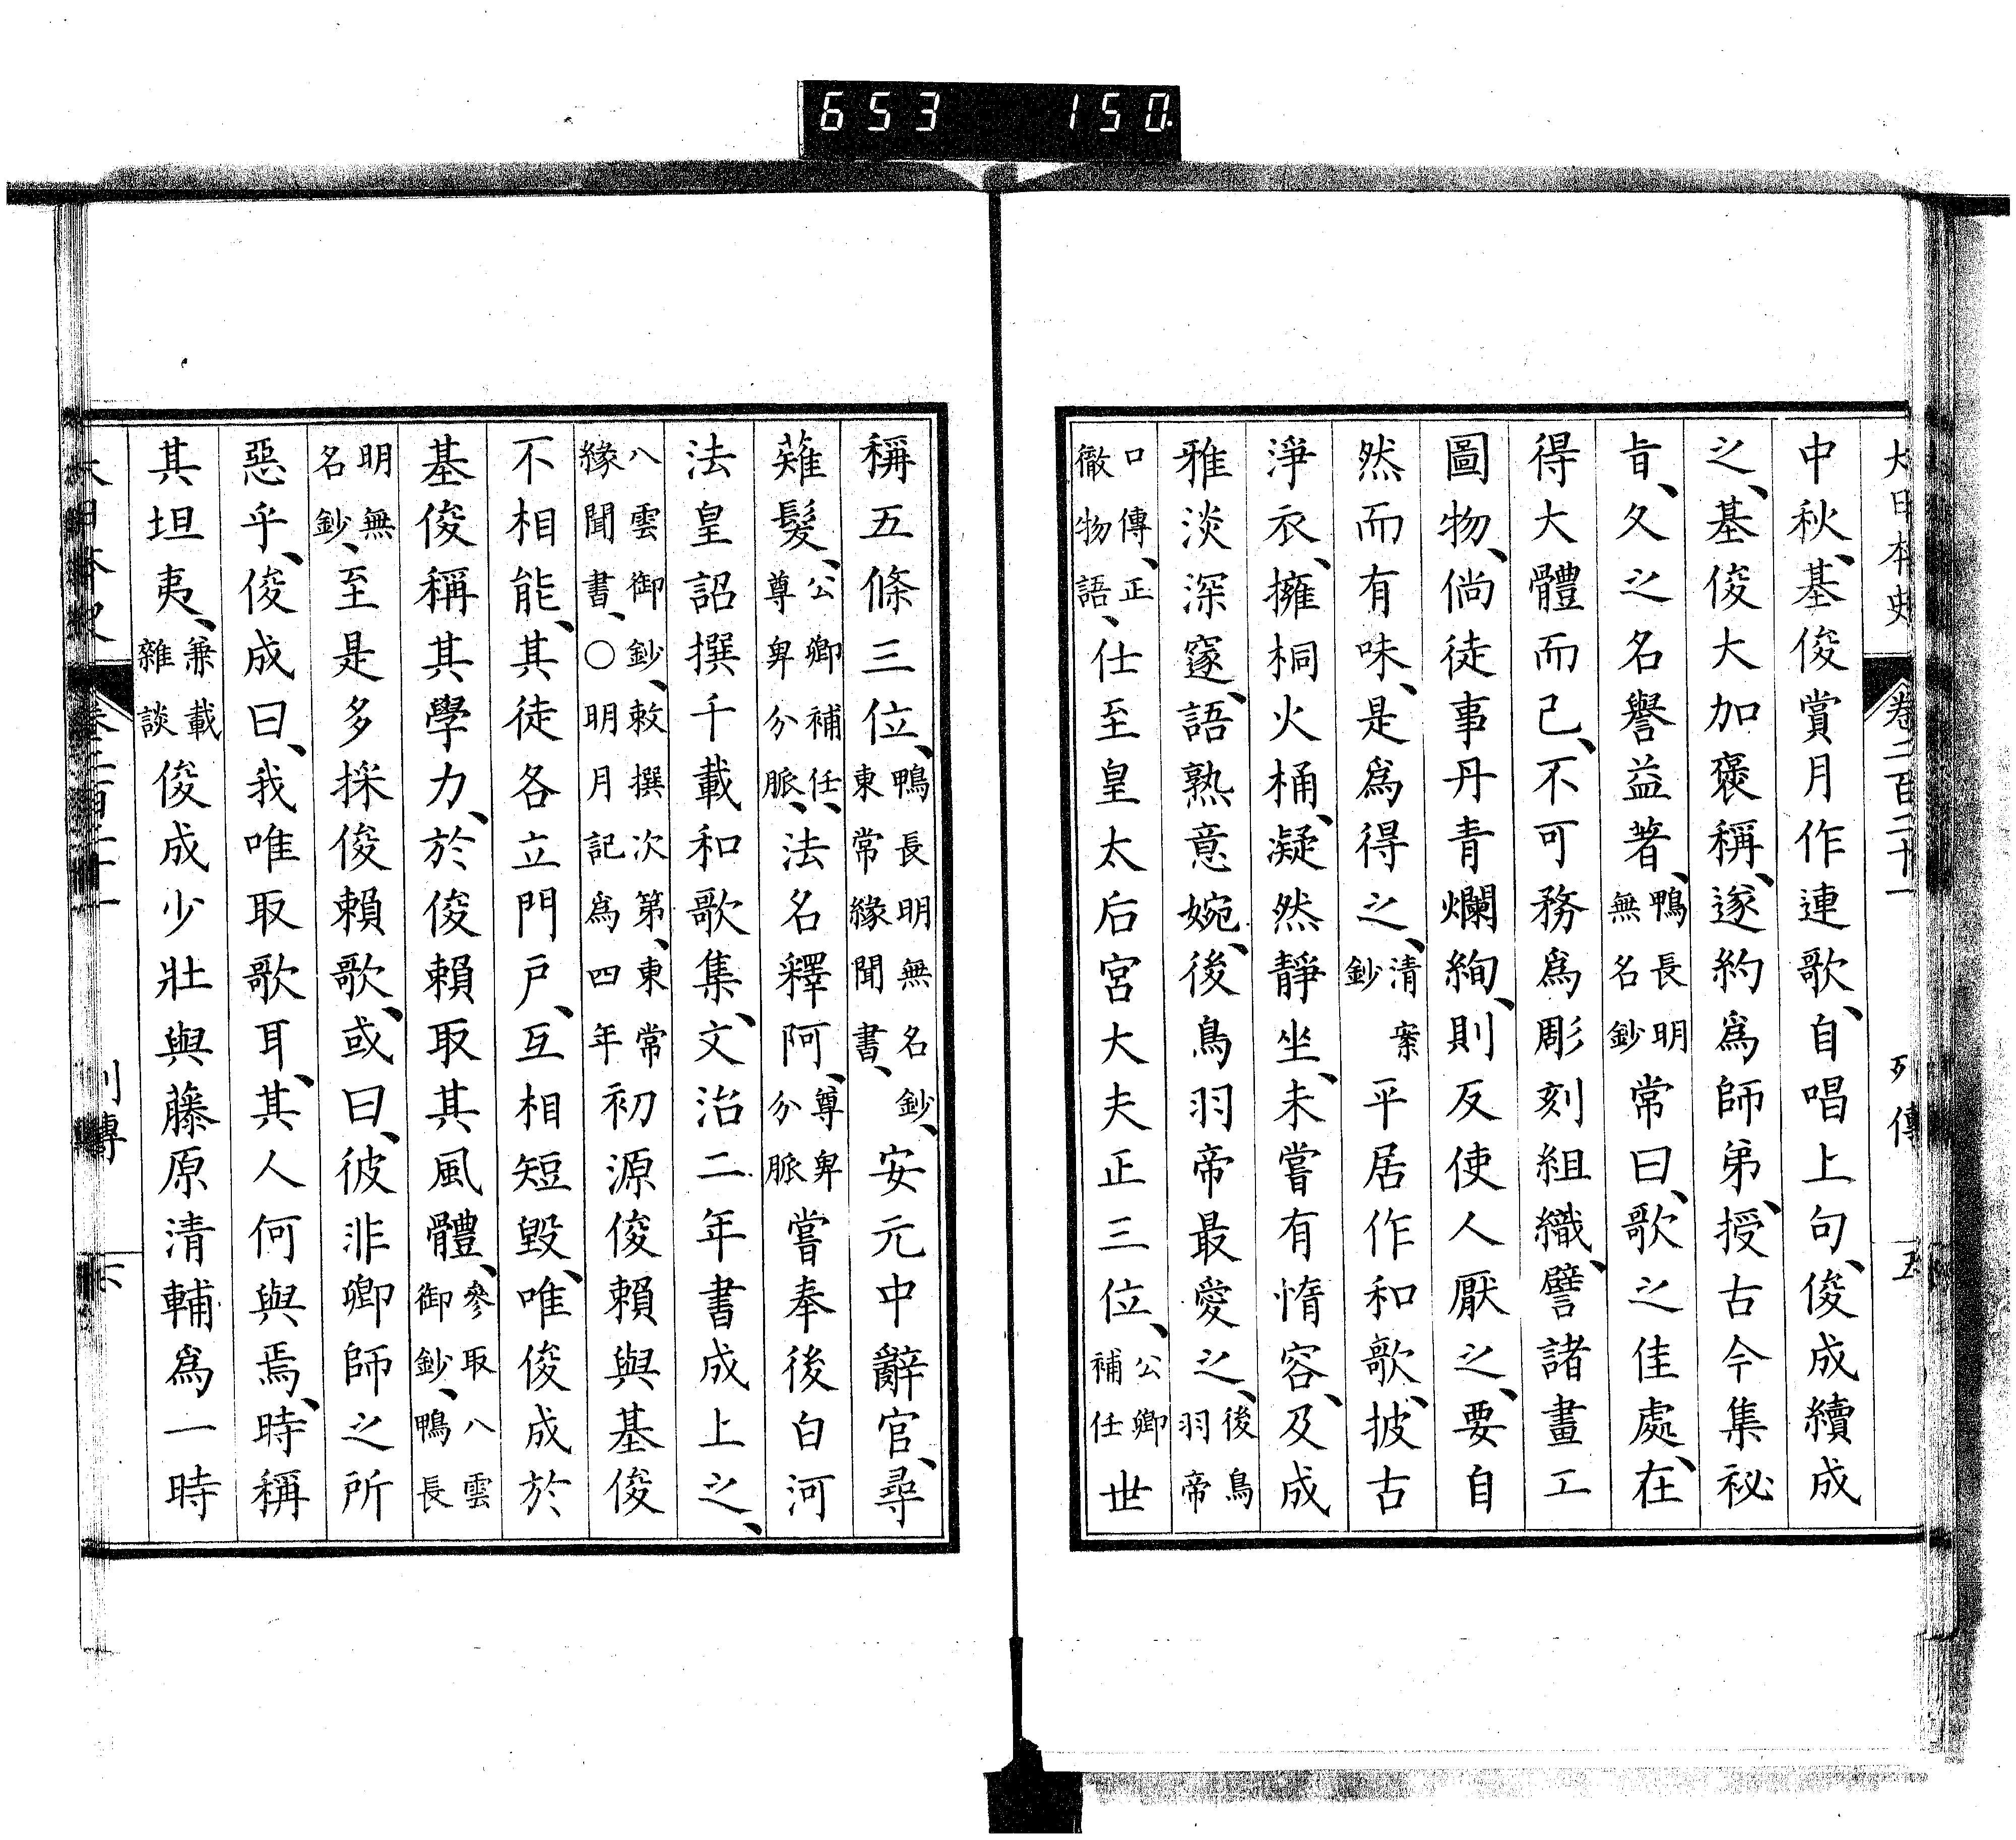 653 150
大日本史 卷二百二十一 列傳 五
中秋、基俊賞月作連歌、自唱上句、俊成續成
之、基俊大加褒稱、遂約爲師弟、授古今集祕
旨、久之名譽益著、鴨長明無名鈔常曰、歌之佳處、在
得大體而已、不可務爲彫刻組織、譬諸畫工
圖物、倘徒事丹青爛絢、則反使人厭之、要自
然而有味、是爲得之、清案鈔平居作和歌、披古
淨衣、擁桐火桶、凝然靜坐、未嘗有惰容、及成
雅淡深窾、語熟意婉、後鳥羽帝最愛之、後鳥羽帝
口傳、正徹物語、仕至皇太后宮大夫正三位、公卿補任世
稱五條三位、鴨長明無名鈔、東常緣聞書、安元中辭官、尋
薙髮、公卿補任、尊卑分脈、法名釋阿、尊卑分脈嘗奉後白河
法皇詔撰千載和歌集、文治二年書成上之、
八雲御鈔、敕撰次第、東常緣聞書、○明月記爲四年初源俊賴與基俊
不相能、其徒各立門戸、互相短毀、唯俊成於
基俊稱其學力、於俊賴取其風體、參取八雲御鈔、鴨長
明無名鈔、至是多採俊賴歌、或曰、彼非卿師之所
惡乎、俊成曰、我唯取歌耳、其人何與焉、時稱
其坦夷、兼載雜談俊成少壯與藤原清輔爲一時
大日本史 卷二百二十一 列傳 六